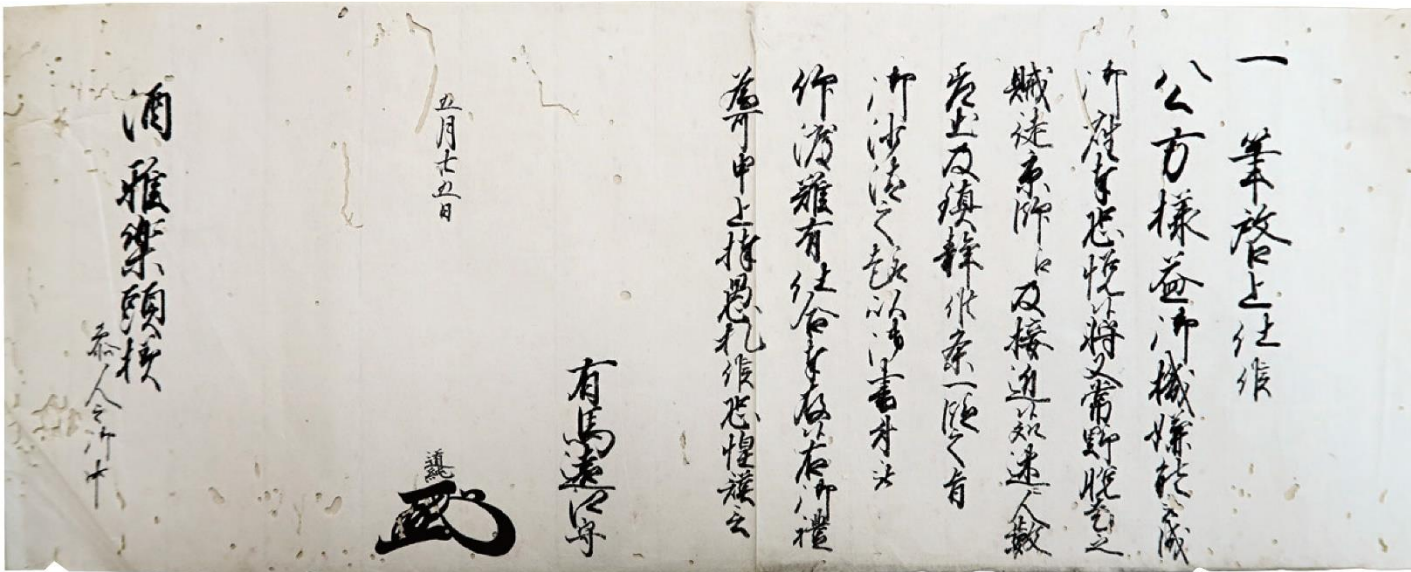 一筆啓上仕候
公方様益御機嫌能被成
御座奉恐悦候将又常野脱走之
賊徒京師江及接近候速人数
差出及鎮静候条一段之旨
御沙汰之趣以御書付被
仰渡難有仕合奉存候右御禮
為可申上捧愚札候恐惶謹言
有馬遠江守
道純
五月廿五日
酒雅楽頭様
参人々御中